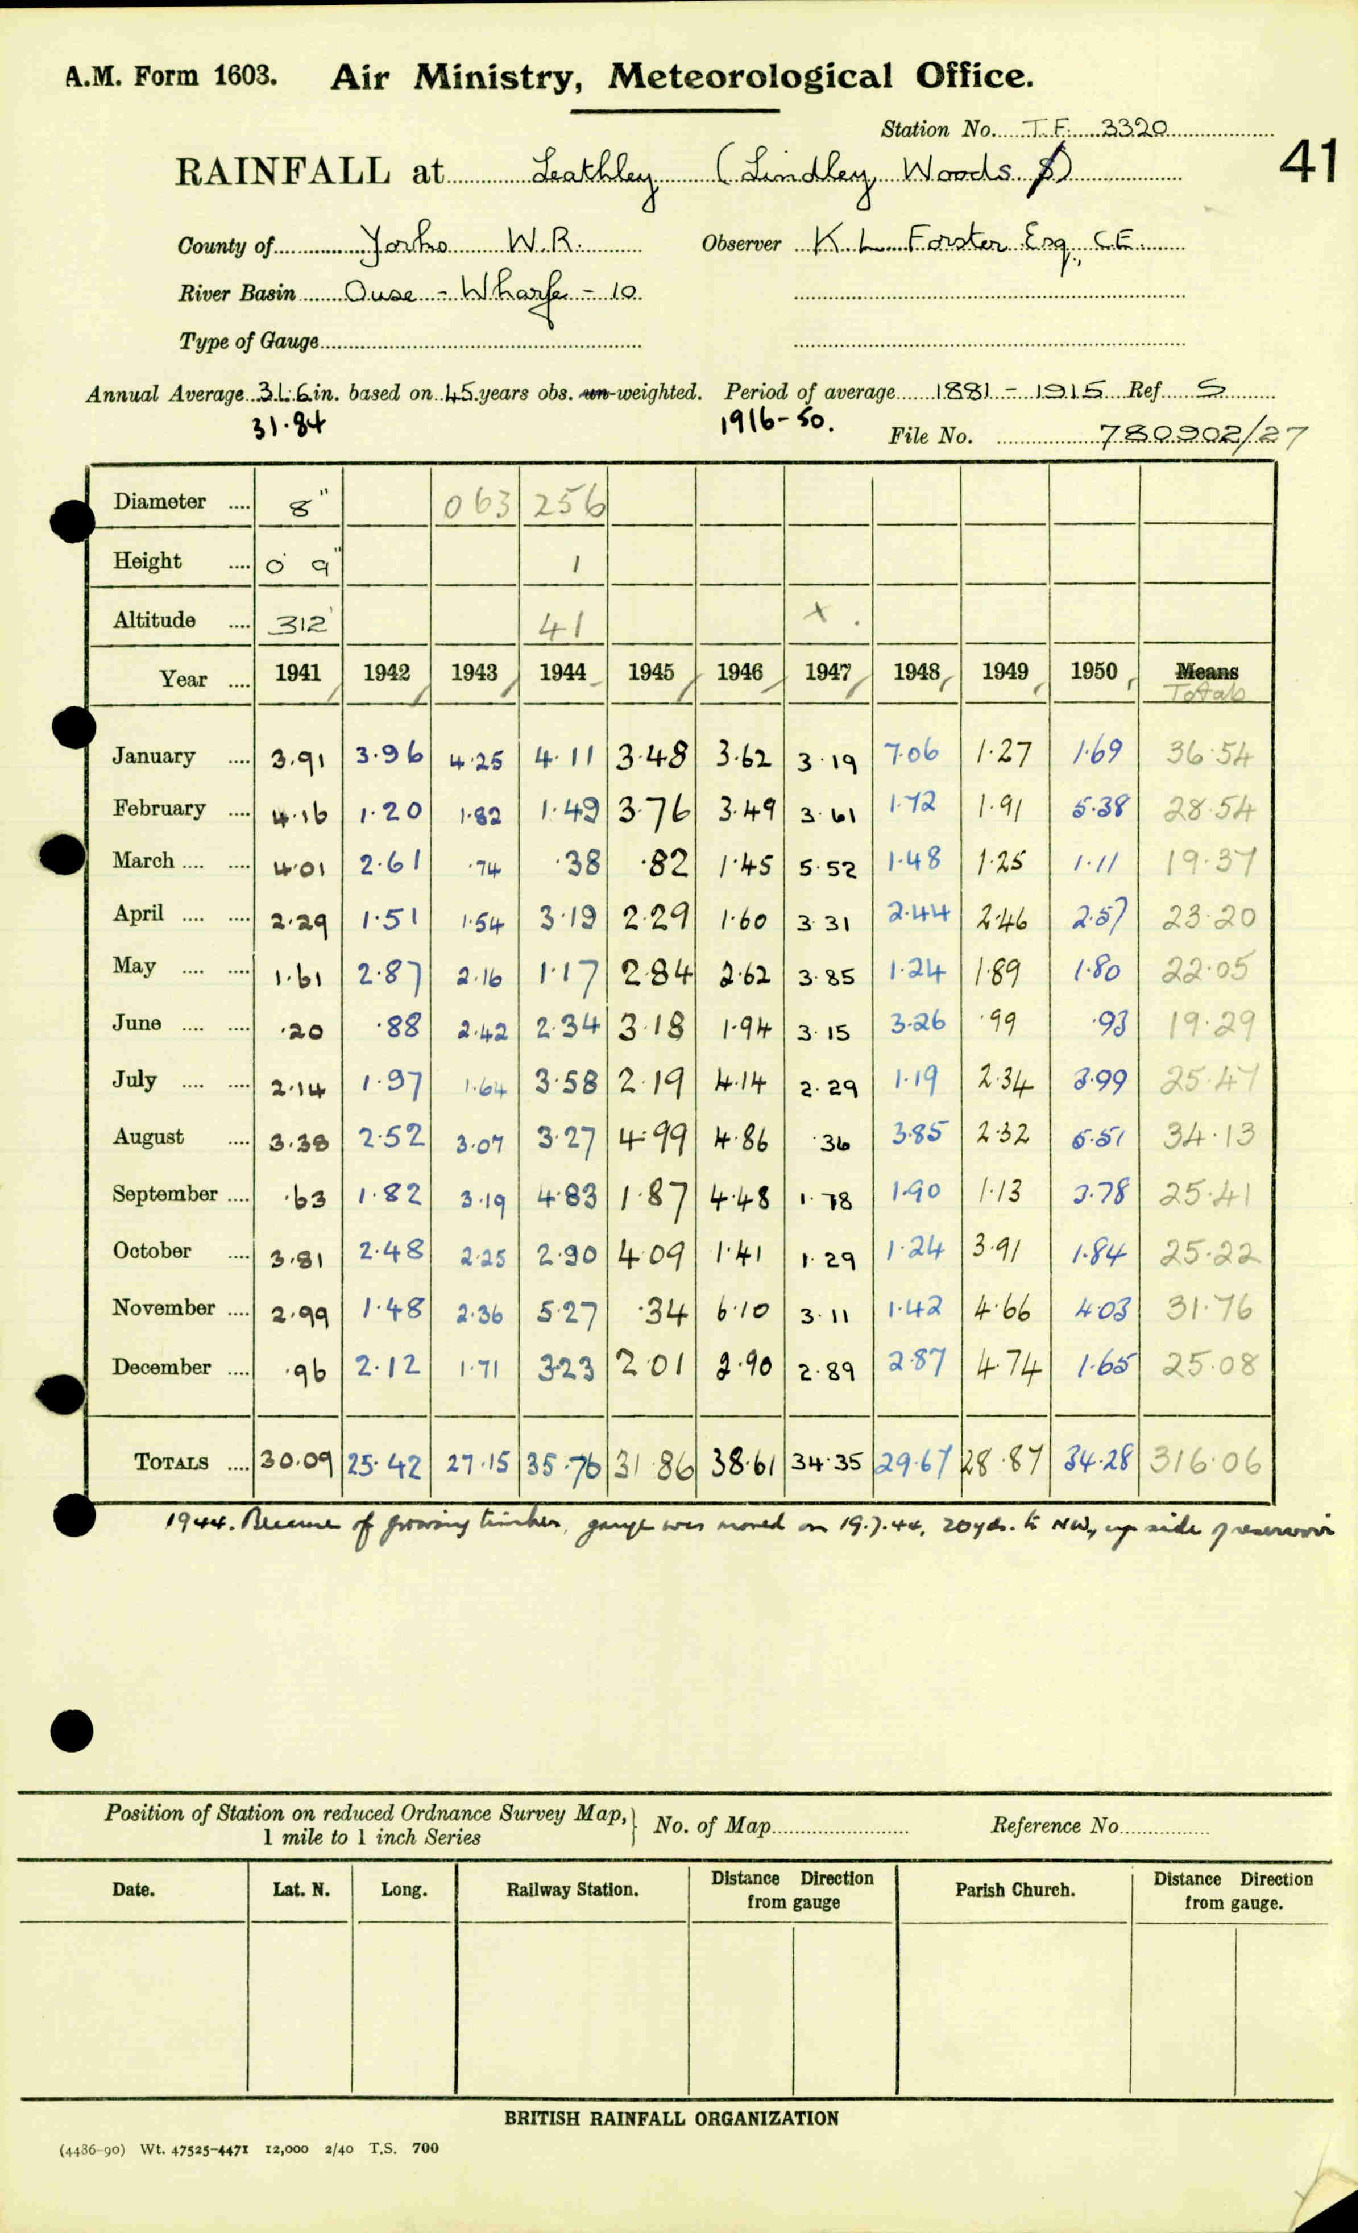 A.M. Form 1603. Air Ministry, Meteorological Office.
Station No. T.F. 3320
RAINFALL at Leathley (Lindley Woods S) 41
County of Yorks W.R. Observer K. L. Forster Esq., C.E.
River Basin Ouse - Wharfe - 10
Type of Gauge
Annual Average 31.6 in. based on 45 years obs. un-weighted. Period of average 1881 - 1915 Ref S
31.84 1916-50.
File No. 780902/27
Diameter .... 8" 063 256
Height .... 0' 9" 1
Altitude .... 312' 41 x .
Year .... 1941 1942 1943 1944 1945 1946 1947 1948 1949 1950 Means
Totals
January .... 3.91 3.96 4.25 4.11 3.48 3.62 3.19 7.06 1.27 1.69 36.54
February .... 4.16 1.20 1.82 1.49 3.76 3.49 3.61 1.72 1.91 5.38 28.54
March .... .... 4.01 2.61 .74 .38 .82 1.45 5.52 1.48 1.25 1.11 19.37
April .... .... 2.29 1.51 1.54 3.19 2.29 1.60 3.31 2.44 2.46 2.57 23.20
May .... .... 1.61 2.87 2.16 1.17 2.84 2.62 3.85 1.24 1.89 1.80 22.05
June .... .... .20 .88 2.42 2.34 3.18 1.94 3.15 3.26 .99 .93 19.29
July .... .... 2.14 1.97 1.64 3.58 2.19 4.14 2.29 1.19 2.34 3.99 25.47
August .... 3.38 2.52 3.07 3.27 4.99 4.86 .36 3.85 2.32 5.51 34.13
September .... .63 1.82 3.19 4.83 1.87 4.48 1.78 1.90 1.13 3.78 25.41
October .... 3.81 2.48 2.25 2.90 4.09 1.41 1.29 1.24 3.91 1.84 25.22
November .... 2.99 1.48 2.36 5.27 .34 6.10 3.11 1.42 4.66 4.03 31.76
December .... .96 2.12 1.71 3.23 2.01 2.90 2.89 2.87 4.74 1.65 25.08
TOTALS .... 30.09 25.42 27.15 35.76 31.86 38.61 34.35 29.67 28.87 34.28 316.06
1944. Because of growing timber, gauge was moved on 19.7.44, 20yds. to NW, up side of reservoir
Position of Station on reduced Ordnance Survey Map, } No. of Map Reference No
1 mile to 1 inch Series
Date. Lat. N. Long. Railway Station. Distance Direction from gauge Parish Church. Distance Direction from gauge.
BRITISH RAINFALL ORGANIZATION
(4486-90) Wt. 47525-4471 12,000 2/40 T.S. 700